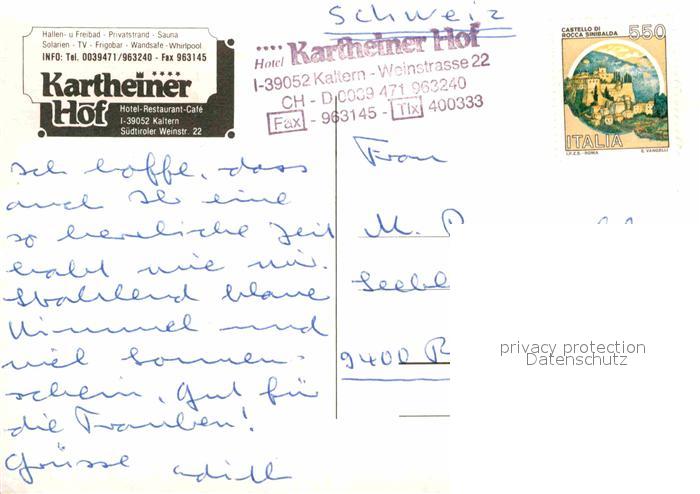 Schweiz
Hallen- u Freibad - Privatstrand - Sauna
Solarien - TV - Frigobar - Wandsafe - Whirlpool
INFO: Tel. 0039471/963240 - Fax 963145
Kartheiner
Hof
Hotel-Restaurant-Café
I-39052 Kaltern
Südtiroler Weinstr. 22
Hotel Kartheiner Hof
I-39052 Kaltern - Weinstrasse 22
CH - D 0039 471 963240
Fax - 963145 - Tlx 400333
CASTELLO DI
ROCCA SINIBALDA
550
ITALIA
I.P.Z.S. - ROMA E. VANGELLI
Ich hoffe, dass
auch Ihr eine
so herrliche Zeit
habt wie wir.
Strahlend blaue
Himmel und
viel Sonnen-
schein. Gut für
die Trauben!
Grüsse
Frau
M.
Seebl
9400 R
privacy protection
Datenschutz